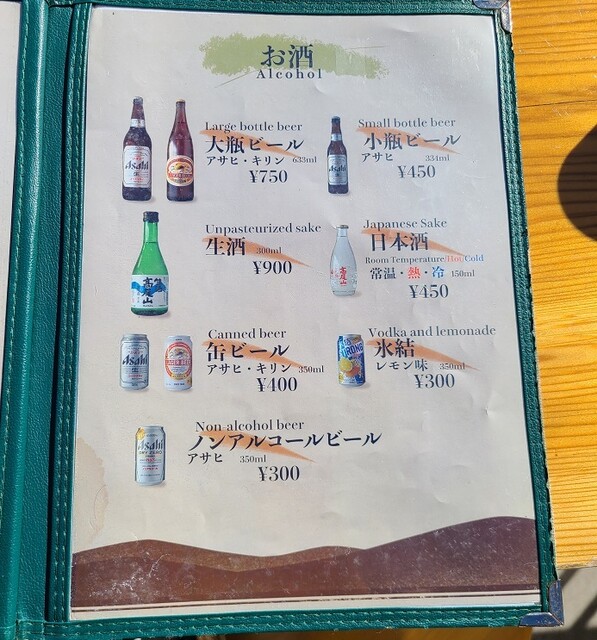 お酒
Alcohol
Large bottle beer
大瓶ビール
アサヒ・キリン 633ml
¥750
Small bottle beer
小瓶ビール
アサヒ 334ml
¥450
Unpasteurized sake
生酒 300ml
¥900
Japanese Sake
日本酒
Room Temperature/Hot/Cold
常温・熱・冷 150ml
¥450
Canned beer
缶ビール
アサヒ・キリン 350ml
¥400
Vodka and lemonade
氷結
レモン味 350ml
¥300
Non-alcohol beer
ノンアルコールビール
アサヒ 350ml
¥300
Asahi
Asahi
高尾山
高尾山
Asahi
STRONG
Asahi
DRY ZERO